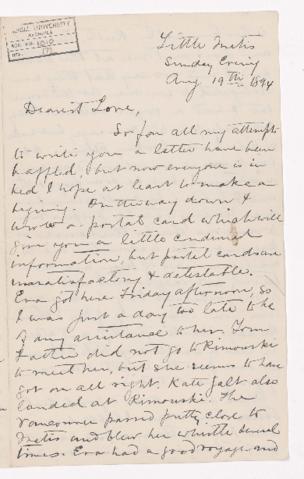 McGILL UNIVERSITY
ARCHIVES
ACC. NO. 1010
REF.
Little Metis
Sunday Eving
Aug 19th 1894
Dearest Love,
So far all my attempts
to write you a letter have been
baffled, but now everyone is in
bed I hope at least to make a
begining. On the way down I
wrote a postal card which will
give you a little condensed
information, but postal cards are
unsatisfactory & detestable.
Eva got here Friday afternoon, so
I was just a day too late to be
of any assistance to her. Your
Father did not go to Rimouski
to meet her, but she seems to have
got on all right. Kate Galt also
landed at Rimouski. The
Vancouver passed pretty close to
Metis and blew her whistle several
times. Eva had a good voyage and